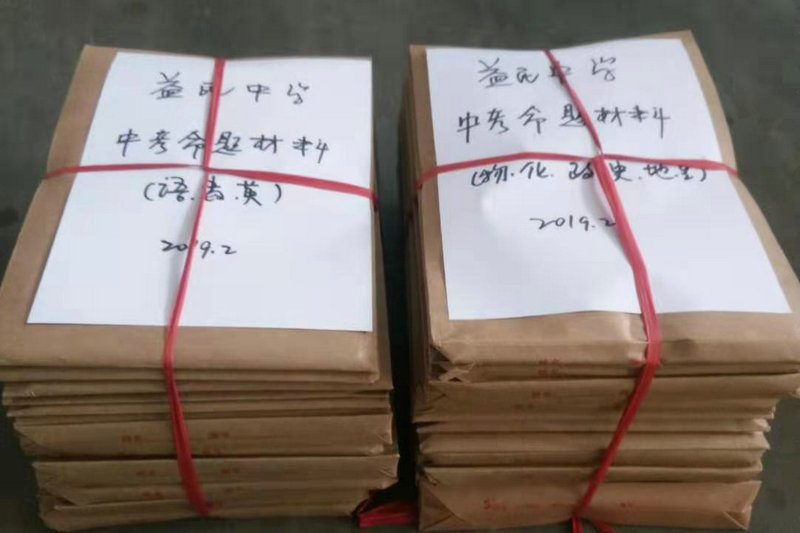 益民中学
中考命题材料
(语.数.英)
2019.2
益民中学
中考命题材料
(物.化.政.史.地.生)
2019.2